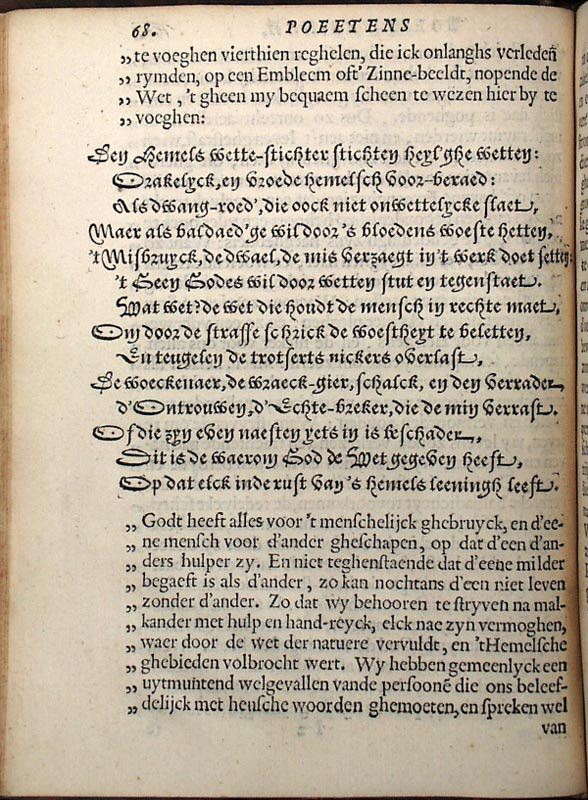 68. POEETENS
„te voeghen vierthien reghelen, die ick onlanghs verledẽn
„rymden, op een Embleem oft' Zinne-beeldt, nopende de
„Wet, 't gheen my bequaem scheen te wezen hier by te
„voeghen:
Den Hemels wette-stichter stichten heyl'ghe wetten:
Orakelyck, en vroede hemelsch voor-beraed:
Als dwang-roed', die oock niet onwettelycke slaet,
Maer als baldaed'ge wil door 's bloedens woeste hetten,
't Misbruyck, de dwael, de mis verzaegt in 't werk doet setten:
't Geen Godes wil door wetten stut en tegenstaet.
Wat wet? de wet die houdt de mensch in rechte maet,
Om door de straffe schrick de woestheyt te beletten,
En teugelen de trotserts nickers overlast,
De woeckenaer, de wraeck-gier, schalck, en den verrader,
d'Ontrouwen, d'Echte-breker, die de min verrast.
Of die zyn even naesten yets in is beschader,
Dit is de waerom God de Wet gegeven heeft,
Op dat elck in de rust van 's hemels leeningh leeft.
„ Godt heeft alles voor 't menschelijck ghebruyck, en d'ee-
„ ne mensch voor d'ander gheschapen, op dat d'een d'an-
„ ders hulper zy. En niet teghenstaende dat d'eene milder
„ begaeft is als d'ander, zo kan nochtans d'een niet leven
„ zonder d'ander. Zo dat wy behooren te stryven na mal-
„ kander met hulp en hand-reyck, elck nae zyn vermoghen,
„ waer door de wet der natuere vervuldt, en 't Hemelsche
„ ghebieden volbrocht wert. Wy hebben gemeenlyck een
„ uytmuntend welgevallen vande persoonẽ die ons beleef-
„ delijck met heusche woorden ghemoeten, en spreken wel
van